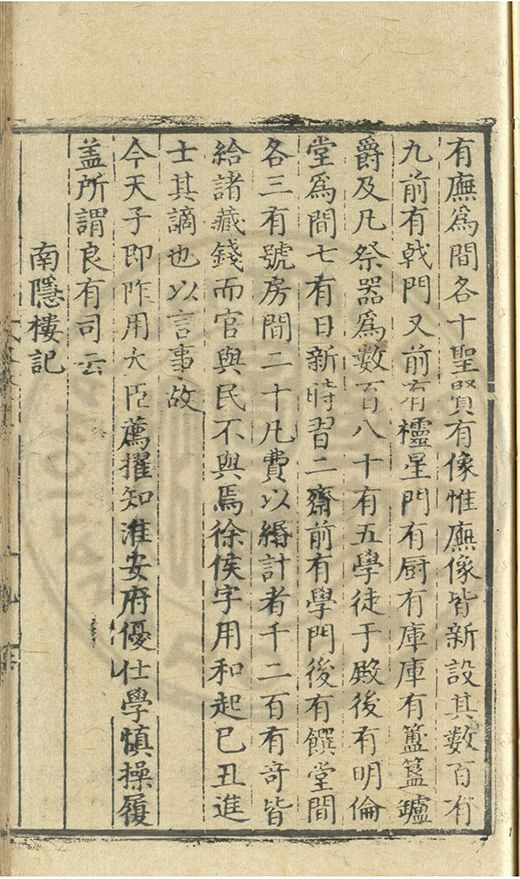 有廡爲間各十聖賢有像惟廡像皆新設其數百有
九前有㦸門又前有櫺星門有厨有庫庫有簠簋鑪
爵及凡祭器爲數百八十有五學徒于殿後有明倫
堂爲間七有日新時習二齋前有學門後有饌堂間
各三有號房間二十凡費以緡計者千二百有奇皆
給諸藏錢而官與民不與焉徐侯字用和起己丑進
士其謫也以言事故
今天子即阼用大臣薦擢知淮安府優仕學慎操履
盖所謂良有司云
南隱樓記